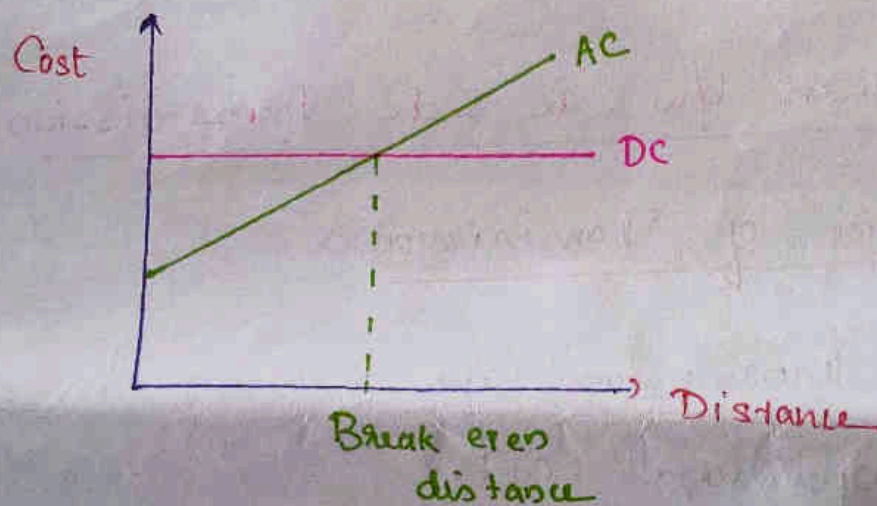 Cost
AC
DC
Distance
Break even
distance